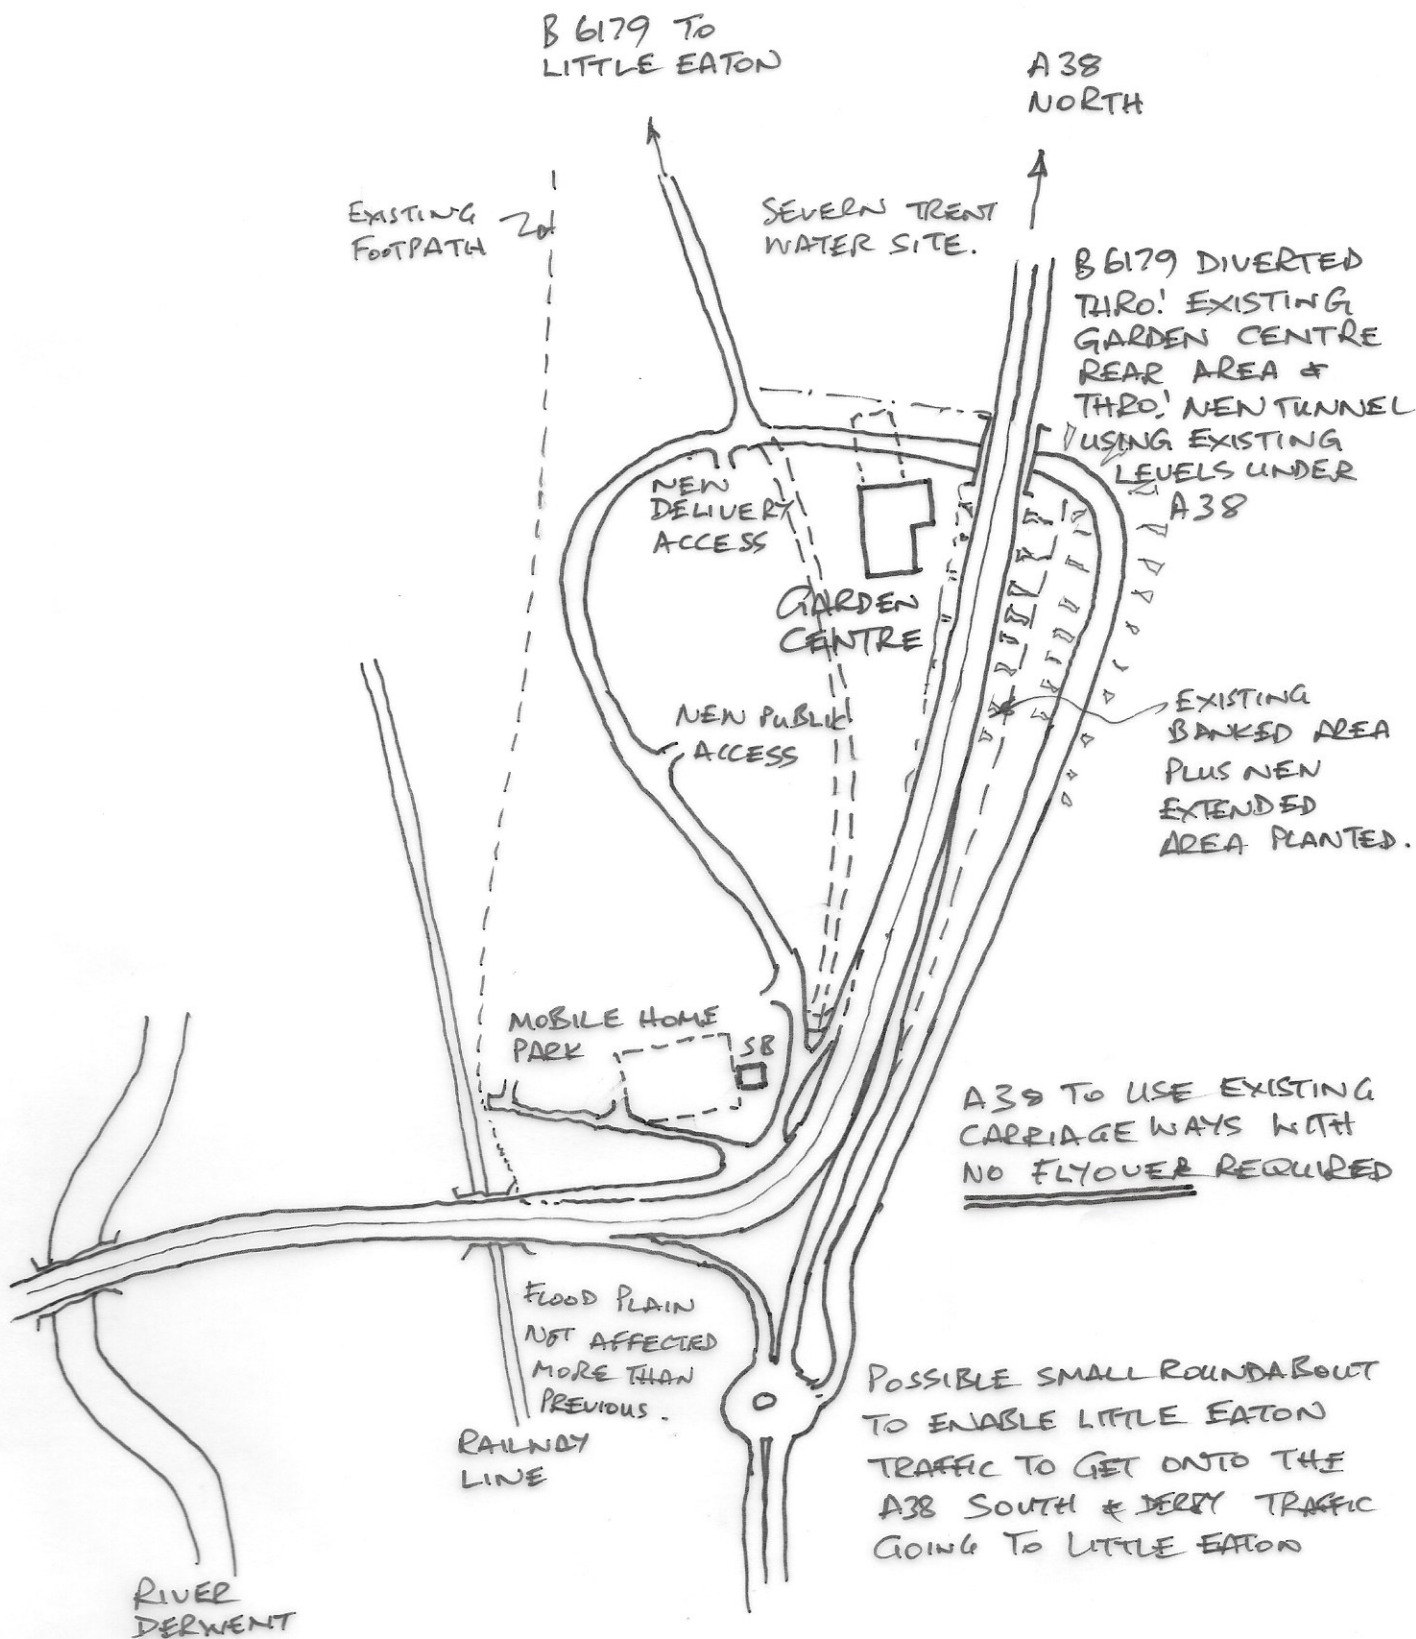 B 6179 TO
LITTLE EATON
A 38
NORTH
EXISTING
FOOTPATH
SEVERN TRENT
WATER SITE.
B 6179 DIVERTED
THRO! EXISTING
GARDEN CENTRE
REAR AREA &
THRO! NEW TUNNEL
USING EXISTING
LEVELS UNDER
A38
NEW
DELIVERY
ACCESS
GARDEN
CENTRE
NEW PUBLIC
ACCESS
EXISTING
BANKED AREA
PLUS NEW
EXTENDED
AREA PLANTED.
MOBILE HOME
PARK
SB
A38 TO USE EXISTING
CARRIAGE WAYS WITH
NO FLYOVER REQUIRED
FLOOD PLAIN
NOT AFFECTED
MORE THAN
PREVIOUS.
RAILWAY
LINE
POSSIBLE SMALL ROUNDABOUT
TO ENABLE LITTLE EATON
TRAFFIC TO GET ONTO THE
A38 SOUTH & DERBY TRAFFIC
GOING TO LITTLE EATON
RIVER
DERWENT